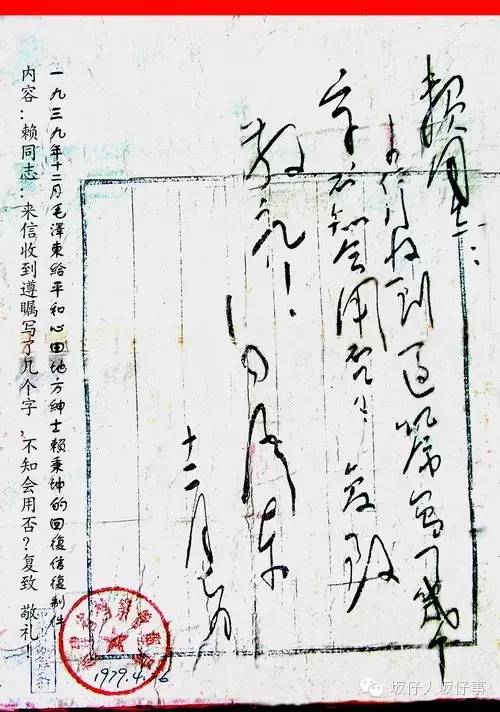 赖同志：
来信收到遵嘱写了幾个
字不知会用否？复致
敬礼！
毛泽东
十二月
一九三九年十二月毛澤東給平和心田地方紳士賴秉坤的回復信復制件
内容：赖同志：来信收到遵瞩写了几个字，不知会用否？复致 敬礼
1979.4.
坂仔人坂仔事